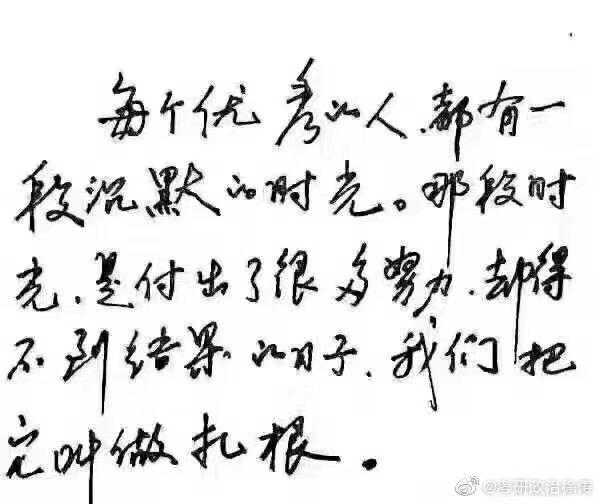 每个优秀的人，都有一
段沉默的时光。那段时
光，是付出了很多努力，却得
不到结果的日子，我们把
它叫做扎根。
@考研政治徐涛